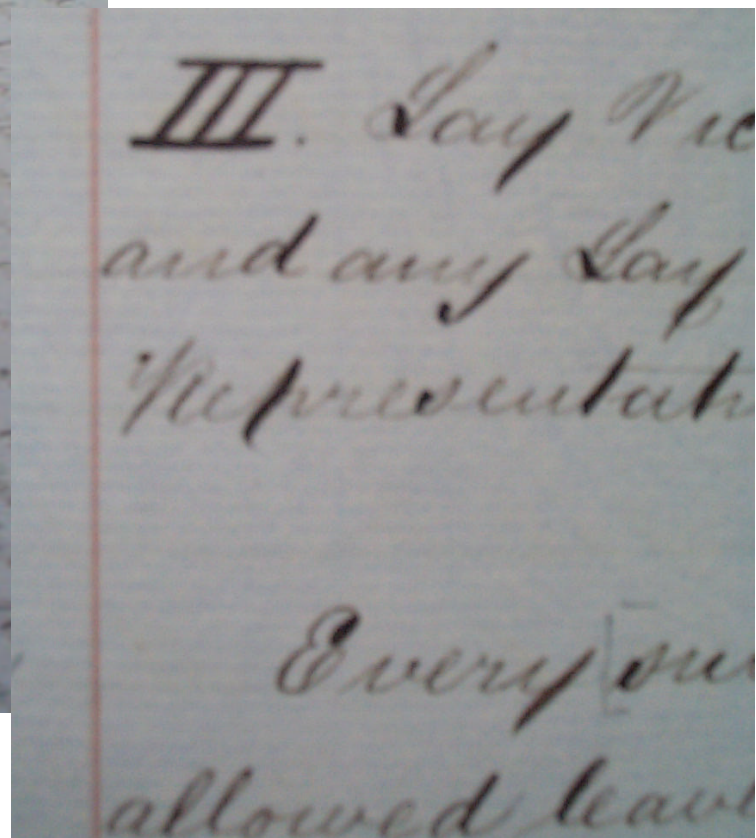 III. Lay Vic
and any Lay
Representati
Every [su
allowed leave